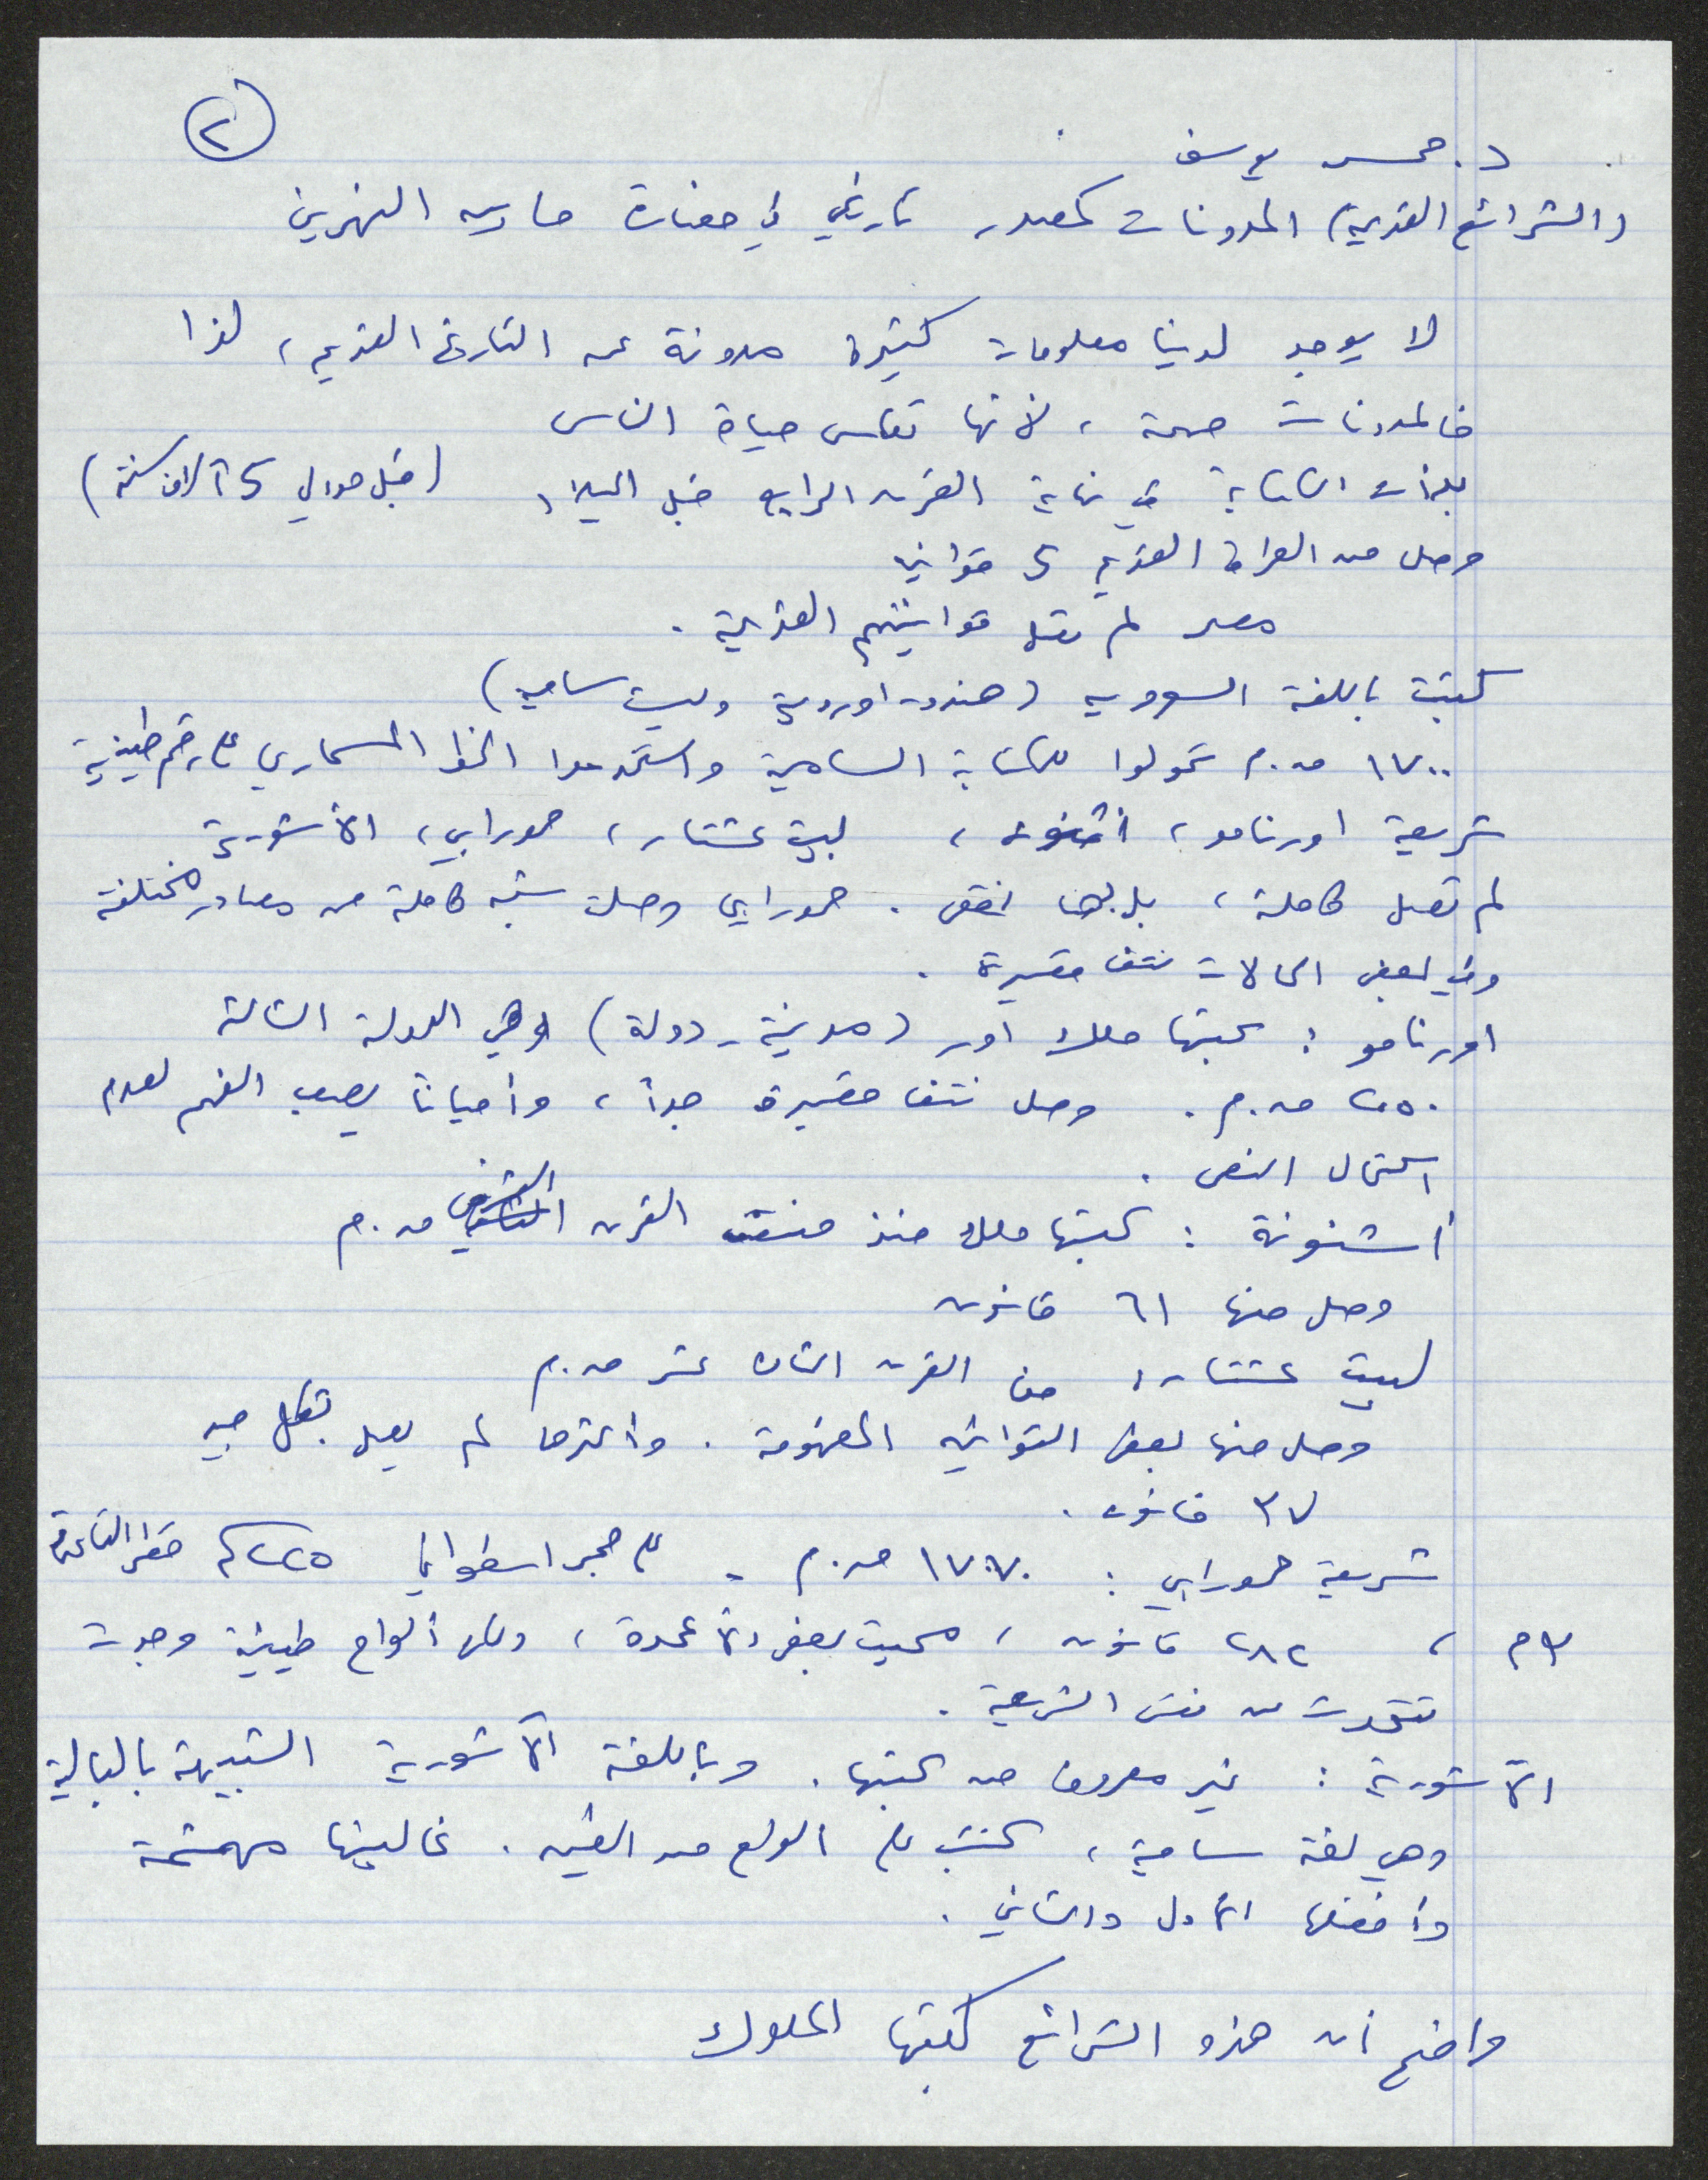 ٢
د. محسن يوسف
(الشرائع القديمة) المدونات كمصدر تاريخي في حضارة ما بين النهرين
لا يوجد لدينا معلومات كثيرة مدونة عن التاريخ القديم، لذا
فالمدونات مهمة، لأنها تعكس حياة الناس
بدأت الكتابة في نهاية القرن الرابع قبل الميلاد (قبل حوالي 5 آلاف سنة)
وصل من العراق القديم 5 قوانين
مصر لم تصل قوانينهم القديمة.
كتبت باللغة السومرية (هندو-اوروبية وليست سامية)
١٧٠٠ ق.م تحولوا للكتابة السامية واستخدموا الخط المسماري على رقم طينية
شريعة اورنامو، أشنونه، لبيت عشتار، حمورابي، الآشورية
لم تصل كاملة، بل بها نقص. حمورابي وصلت شبه كاملة من مصادر مختلفة
وفي بعض الحالات نتف قصيرة.
اورنامو: كتبها ملك اور (مدينة - دولة) وهي الدولة الثالثة
٢٠٥٠ ق.م. وصل نتف قصيرة جداً، وأحياناً يصعب الفهم لعدم
اكتمال النص.
أشنونة: كتبها ملك منذ منتصف القرن العشرين ق.م
وصل منها ٦١ قانون
لبيت عشتار: من القرن الثامن عشر ق.م
وصل منها بعض القوانين المفهومة. وأكثرها لم يصل بشكل جيد
٣٧ قانون.
شريعة حمورابي: ١٧٠٧ ق.م. على حجر اسطواني ٢٢٥سم قطر القاعدة
٣م، ٢٨٢ قانون، محيت بعض الأعمدة، ولكن ألواح طينية وجدت
تتحدث عن نفس الشريعة.
الآشورية: غير معروف من كتبها. وباللغة الآشورية الشبيهة بالبابلية
وهي لغة سامية، كتبت على الواح من الطين. غالبيتها مهشمة
وأفضلها الأول والثاني.
واضح أن هذه الشرائع كتبها الملوك